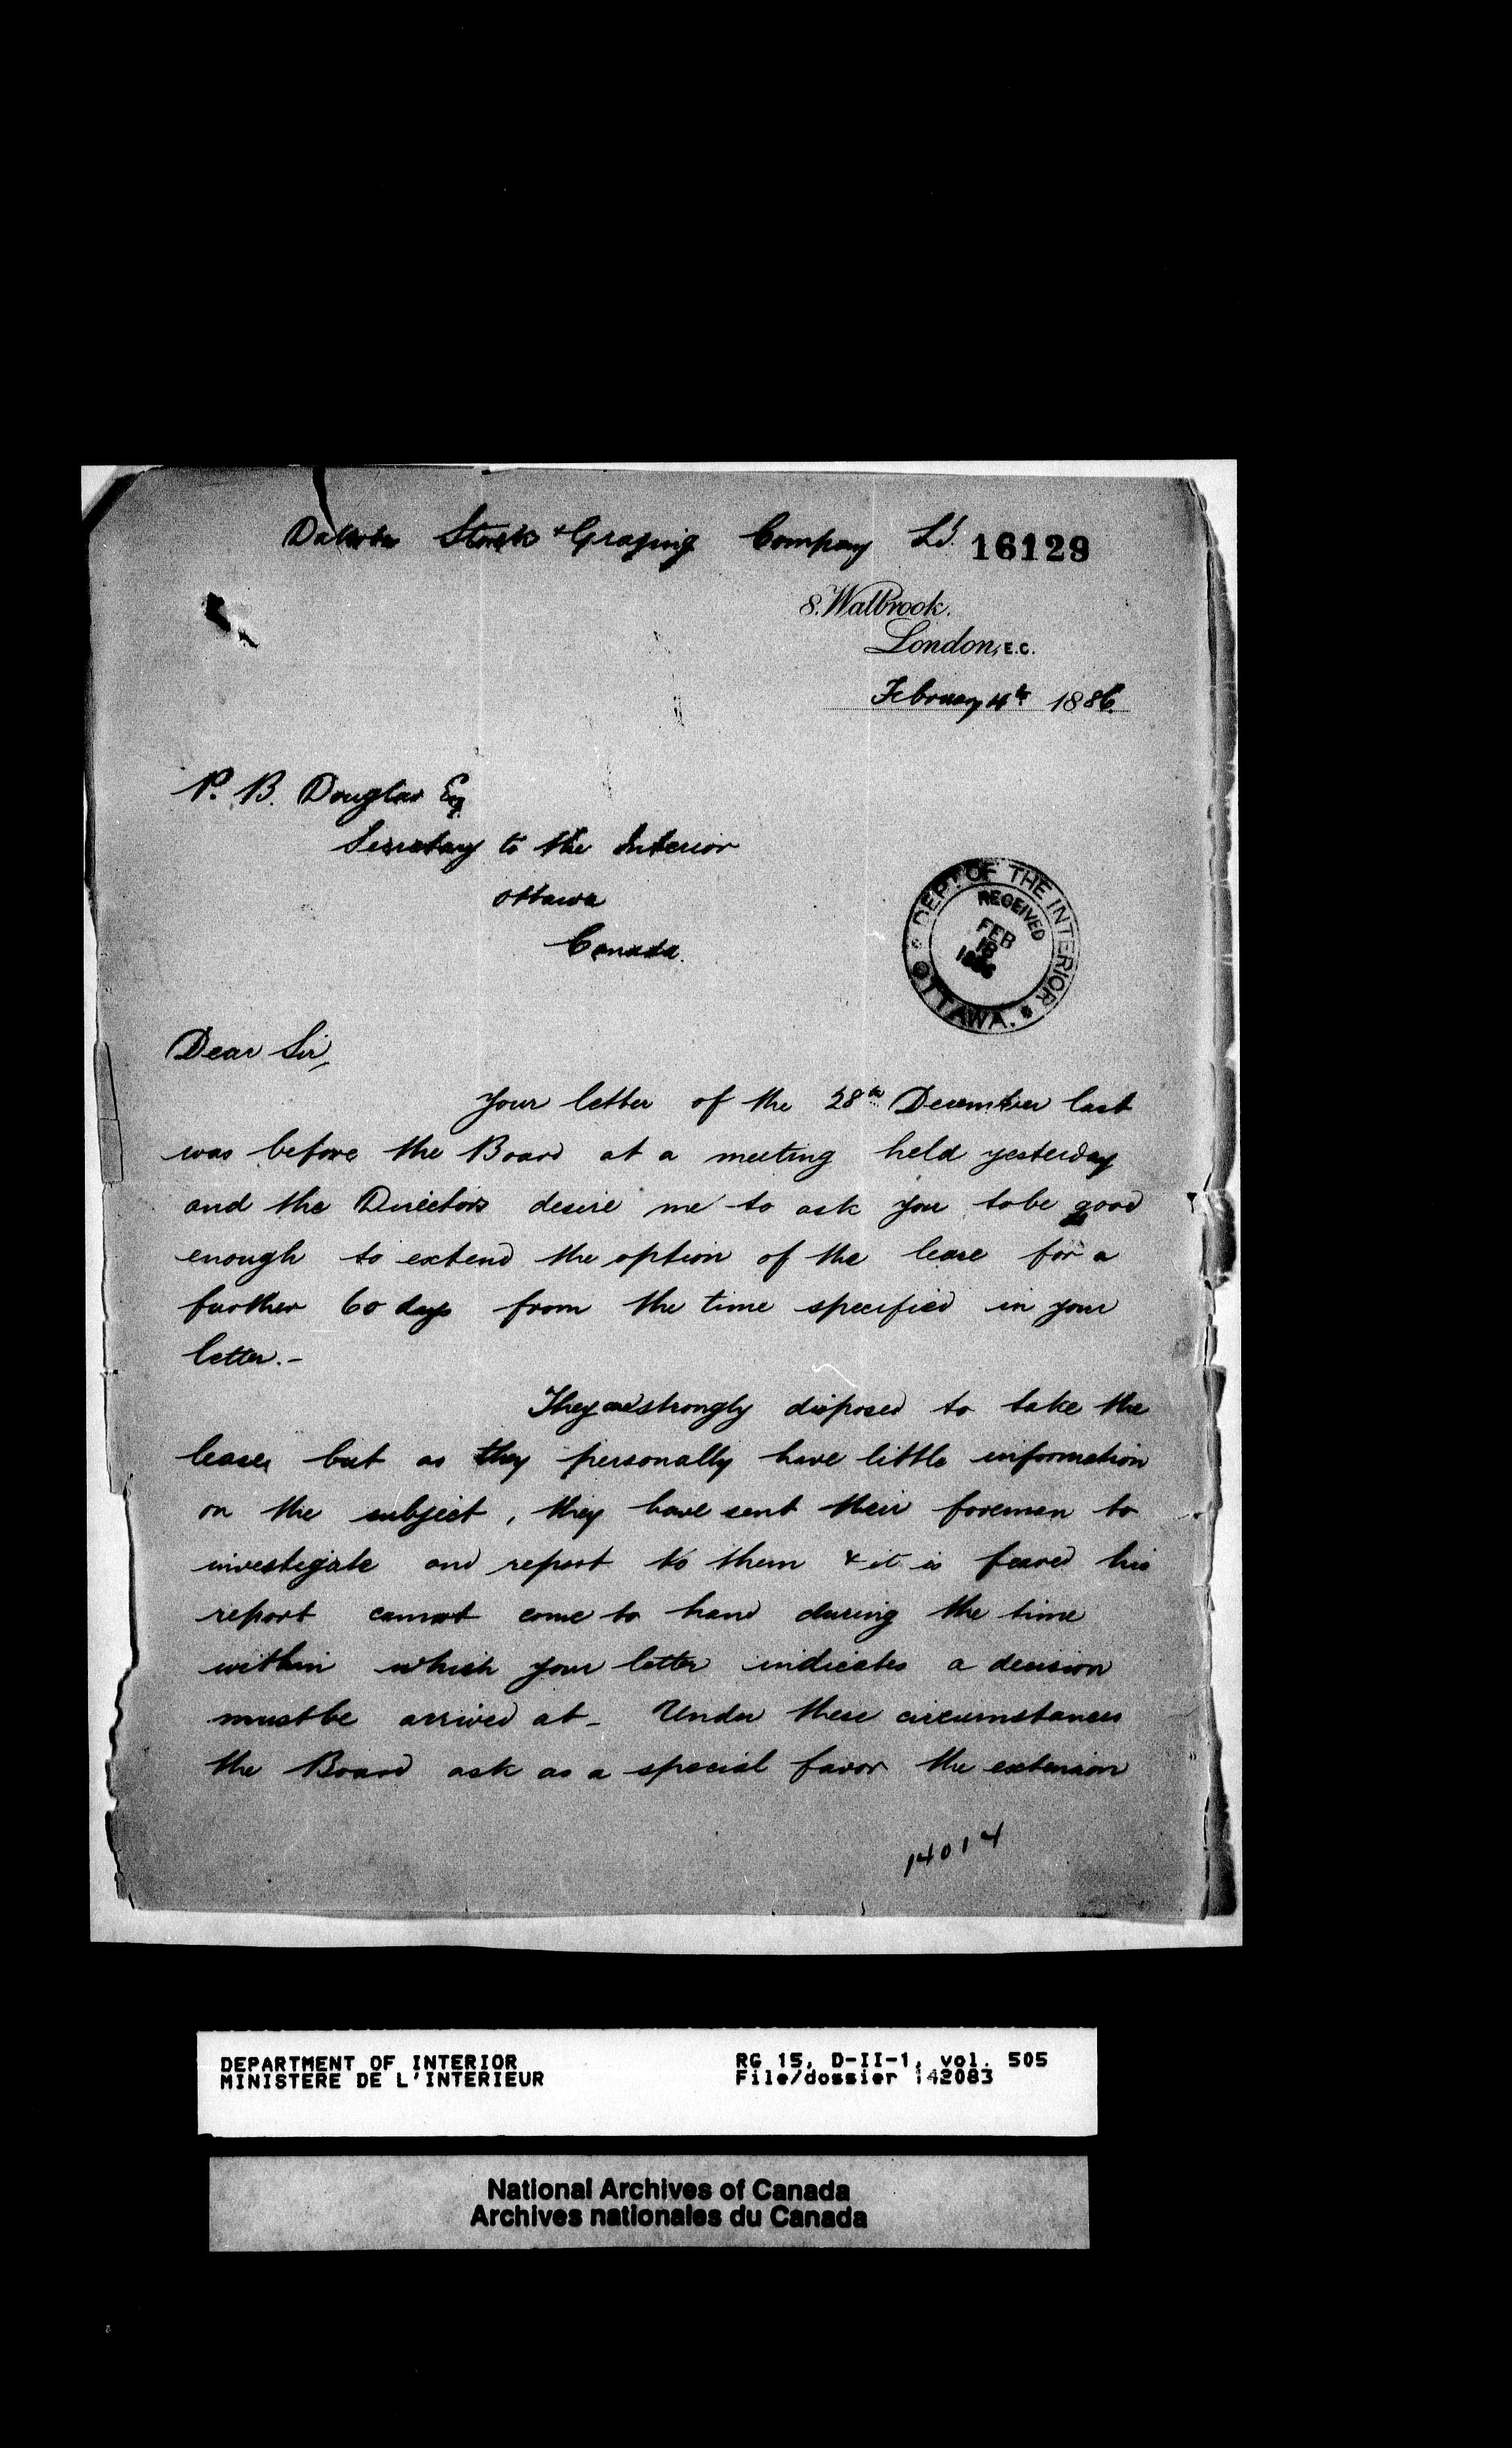 Dakota Stock & Grazing Company Ld. 16129
8. Walbrook.
London, E.C.
February 4th 1886.
P. B. Douglas Esq
Secretary to the Interior
Ottawa
Canada.
DEPT OF THE INTERIOR
RECEIVED
FEB
18
1886
OTTAWA.
Dear Sir,
Your letter of the 28th December last
was before the Board at a meeting held yesterday
and the Directors desire me to ask you to be good
enough to extend the option of the lease for a
further 60 days from the time specified in your
letter.-
They are strongly disposed to take the
lease, but as they personally have little information
on the subject, they have sent their foreman to
investigate and report to them & it is feared his
report cannot come to hand during the time
within which your letter indicates a decision
must be arrived at - Under these circumstances
the Board ask as a special favor the extension
14014
DEPARTMENT OF INTERIOR RG 15, D-II-1, vol. 505
MINISTERE DE L'INTERIEUR File/dossier 142083
National Archives of Canada
Archives nationales du Canada